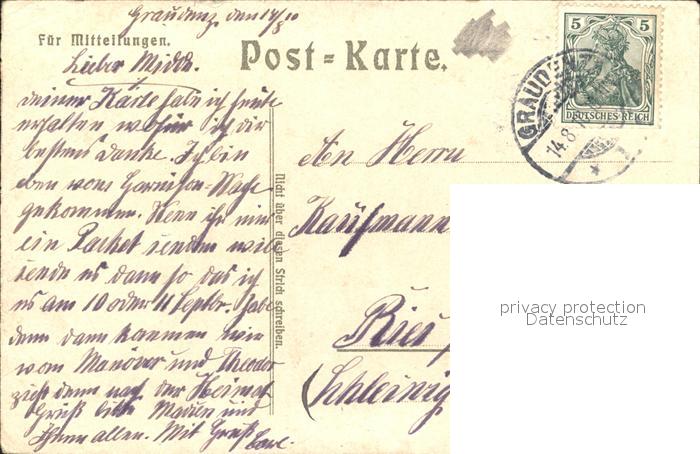 Graudenz den 14/8 10
Für Mitteilungen.
Post-Karte.
Lieber
deine Karte habe ich heute
erhalten wofür ich dir
bestens danke. Ich bin
eben von Garnison-Wache
gekommen. Wenn ihr mir
ein Packet senden will
sende es dann so das ich
es am 10 oder 11 Septbr. habe
denn dann kommen wir
vom Manöver und Theodor
zieht dann nach der Heimat
Gruß bitte und
Ihnen allen. Mit Gruß
Nicht über diesen Strich schreiben.
5 5
DEUTSCHES REICH
GRAUDENZ
14.8.
An Herrn
Kaufmann
(Schleswig
privacy protection
Datenschutz